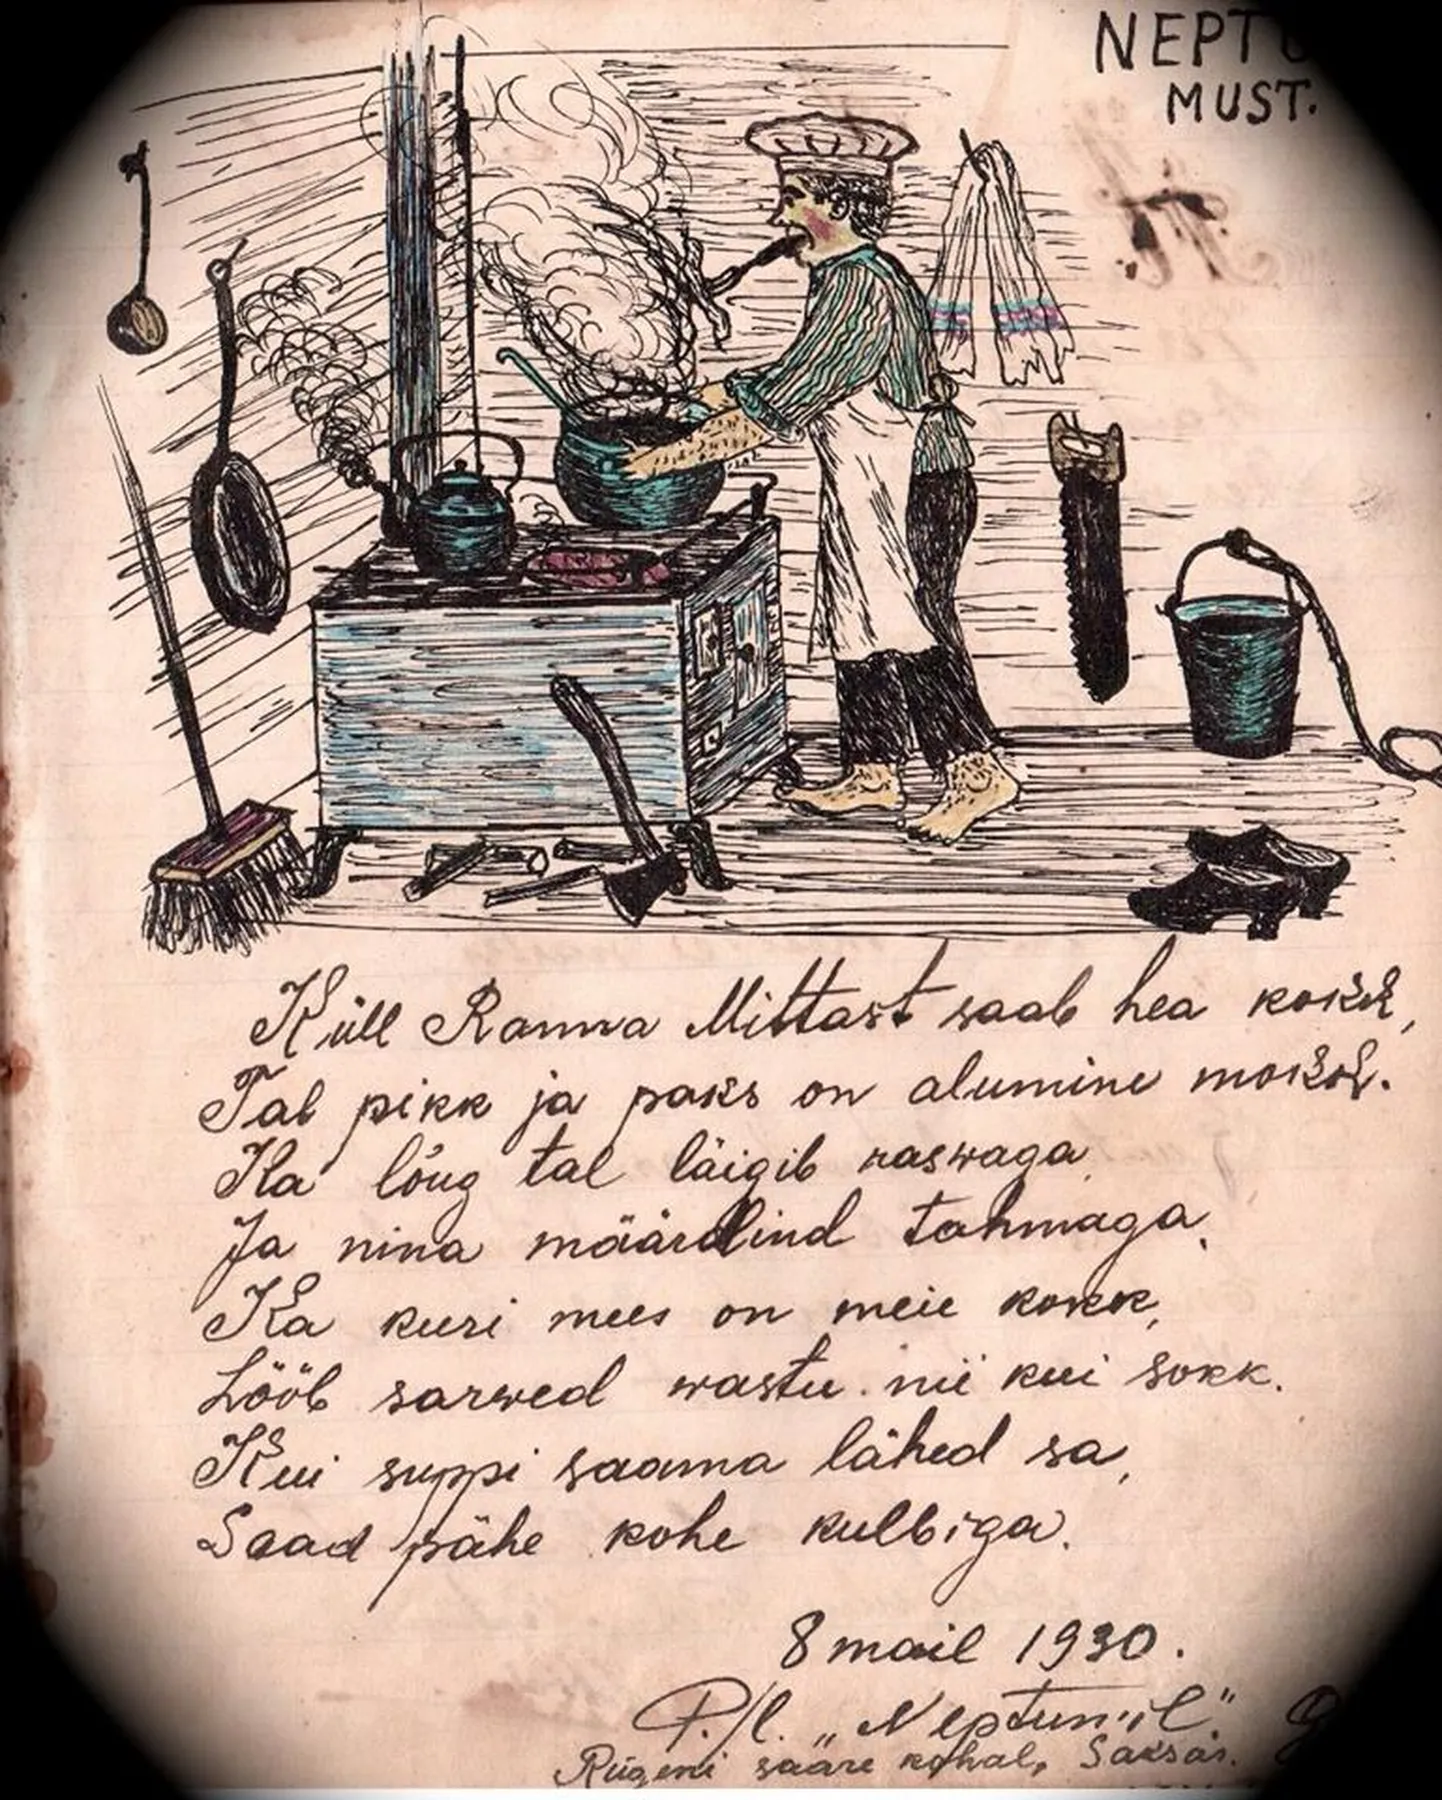 NEPTU
MUST.
Küll Ranna Mittast saab hea kokk,
Tal pikk ja paks on alumine mokk.
Ka lõug tal läigib raswaga
Ja nina määrdind tahmaga,
Ka kuri mees on meie kokk,
Lööb sarwed wastu nii kui sokk.
Kui suppi saama lähed sa,
Saad pähe kohe kulbiga.
8 mail 1930.
P./l. „Neptun'il"
Rügeni saare kohal, Saksas.